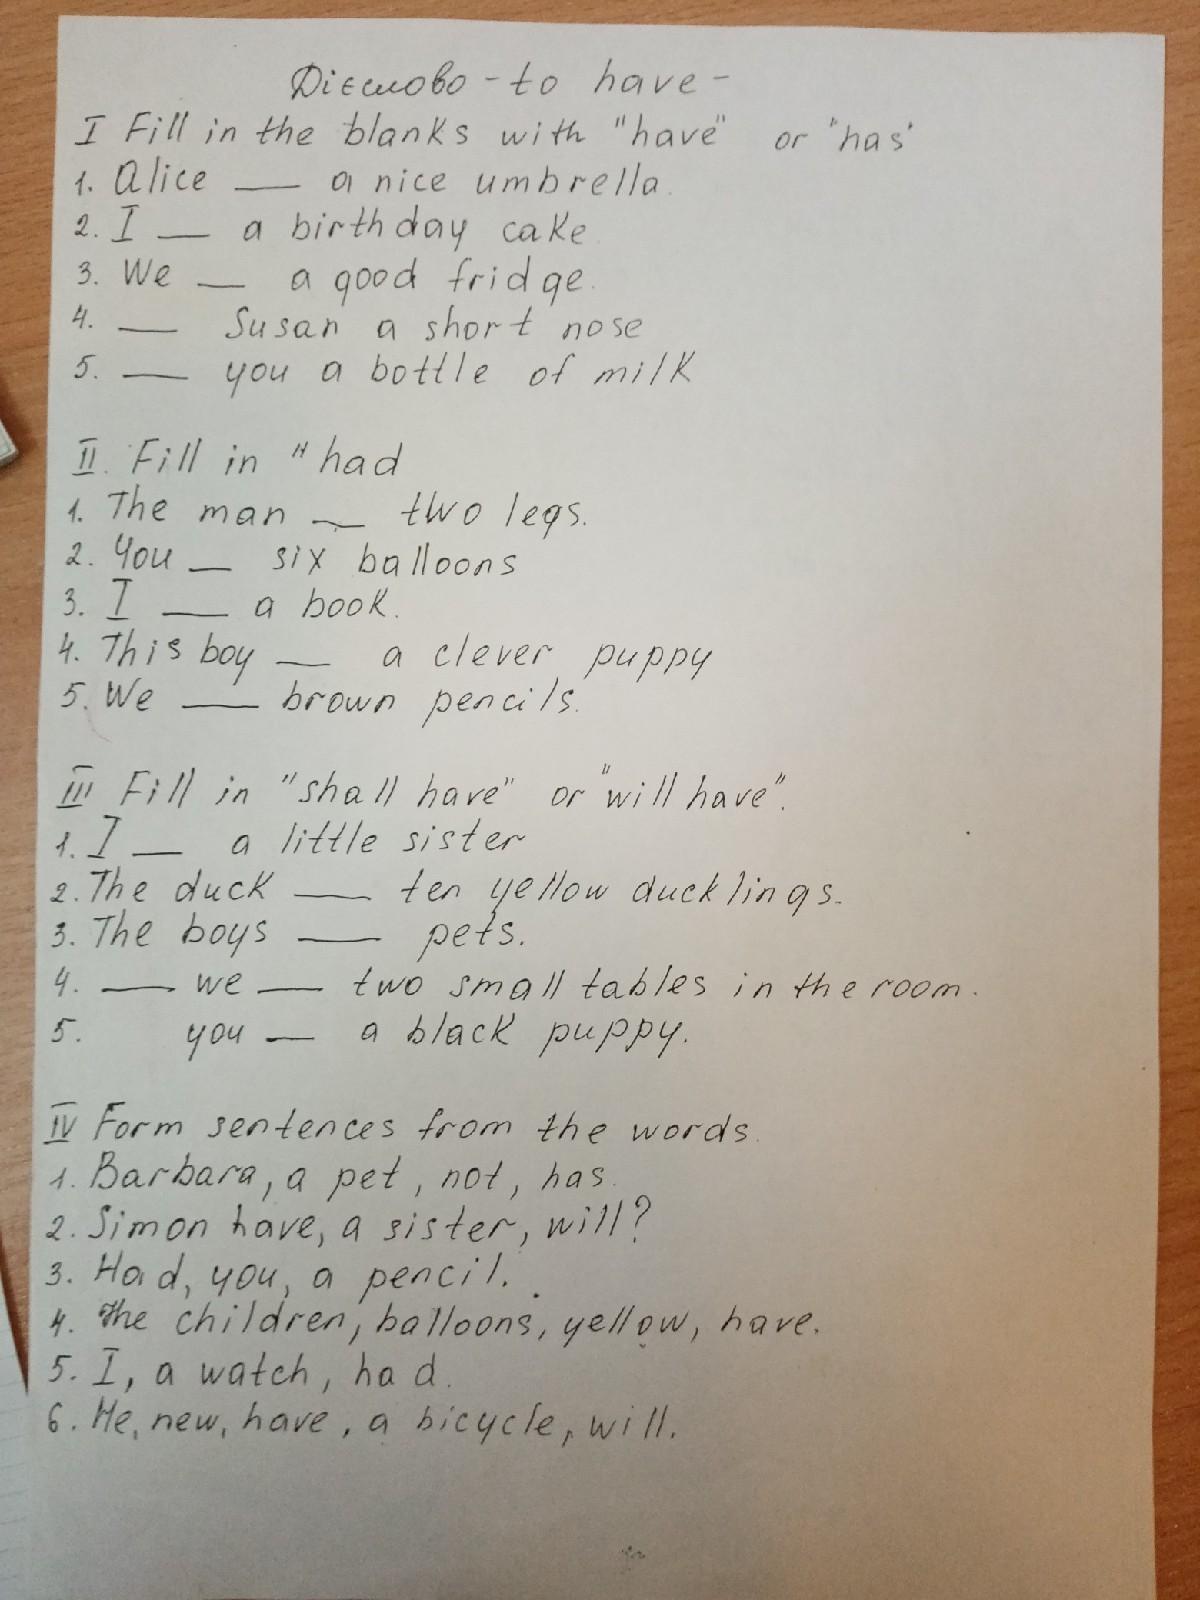 Дієслово - to have -
I Fill in the blanks with "have" or "has"
1. Alice __ a nice umbrella.
2. I __ a birthday cake
3. We __ a good fridge.
4. __ Susan a short nose
5. __ you a bottle of milk
II. Fill in "had
1. The man __ two legs.
2. You __ six balloons
3. I __ a book.
4. This boy __ a clever puppy
5. We __ brown pencils.
III Fill in "shall have" or "will have".
1. I __ a little sister
2. The duck __ ten yellow ducklings.
3. The boys __ pets.
4. __ we __ two small tables in the room.
5. you __ a black puppy.
IV Form sentences from the words.
1. Barbara, a pet, not, has.
2. Simon have, a sister, will?
3. Had, you, a pencil.
4. The children, balloons, yellow, have.
5. I, a watch, had.
6. He, new, have, a bicycle, will.